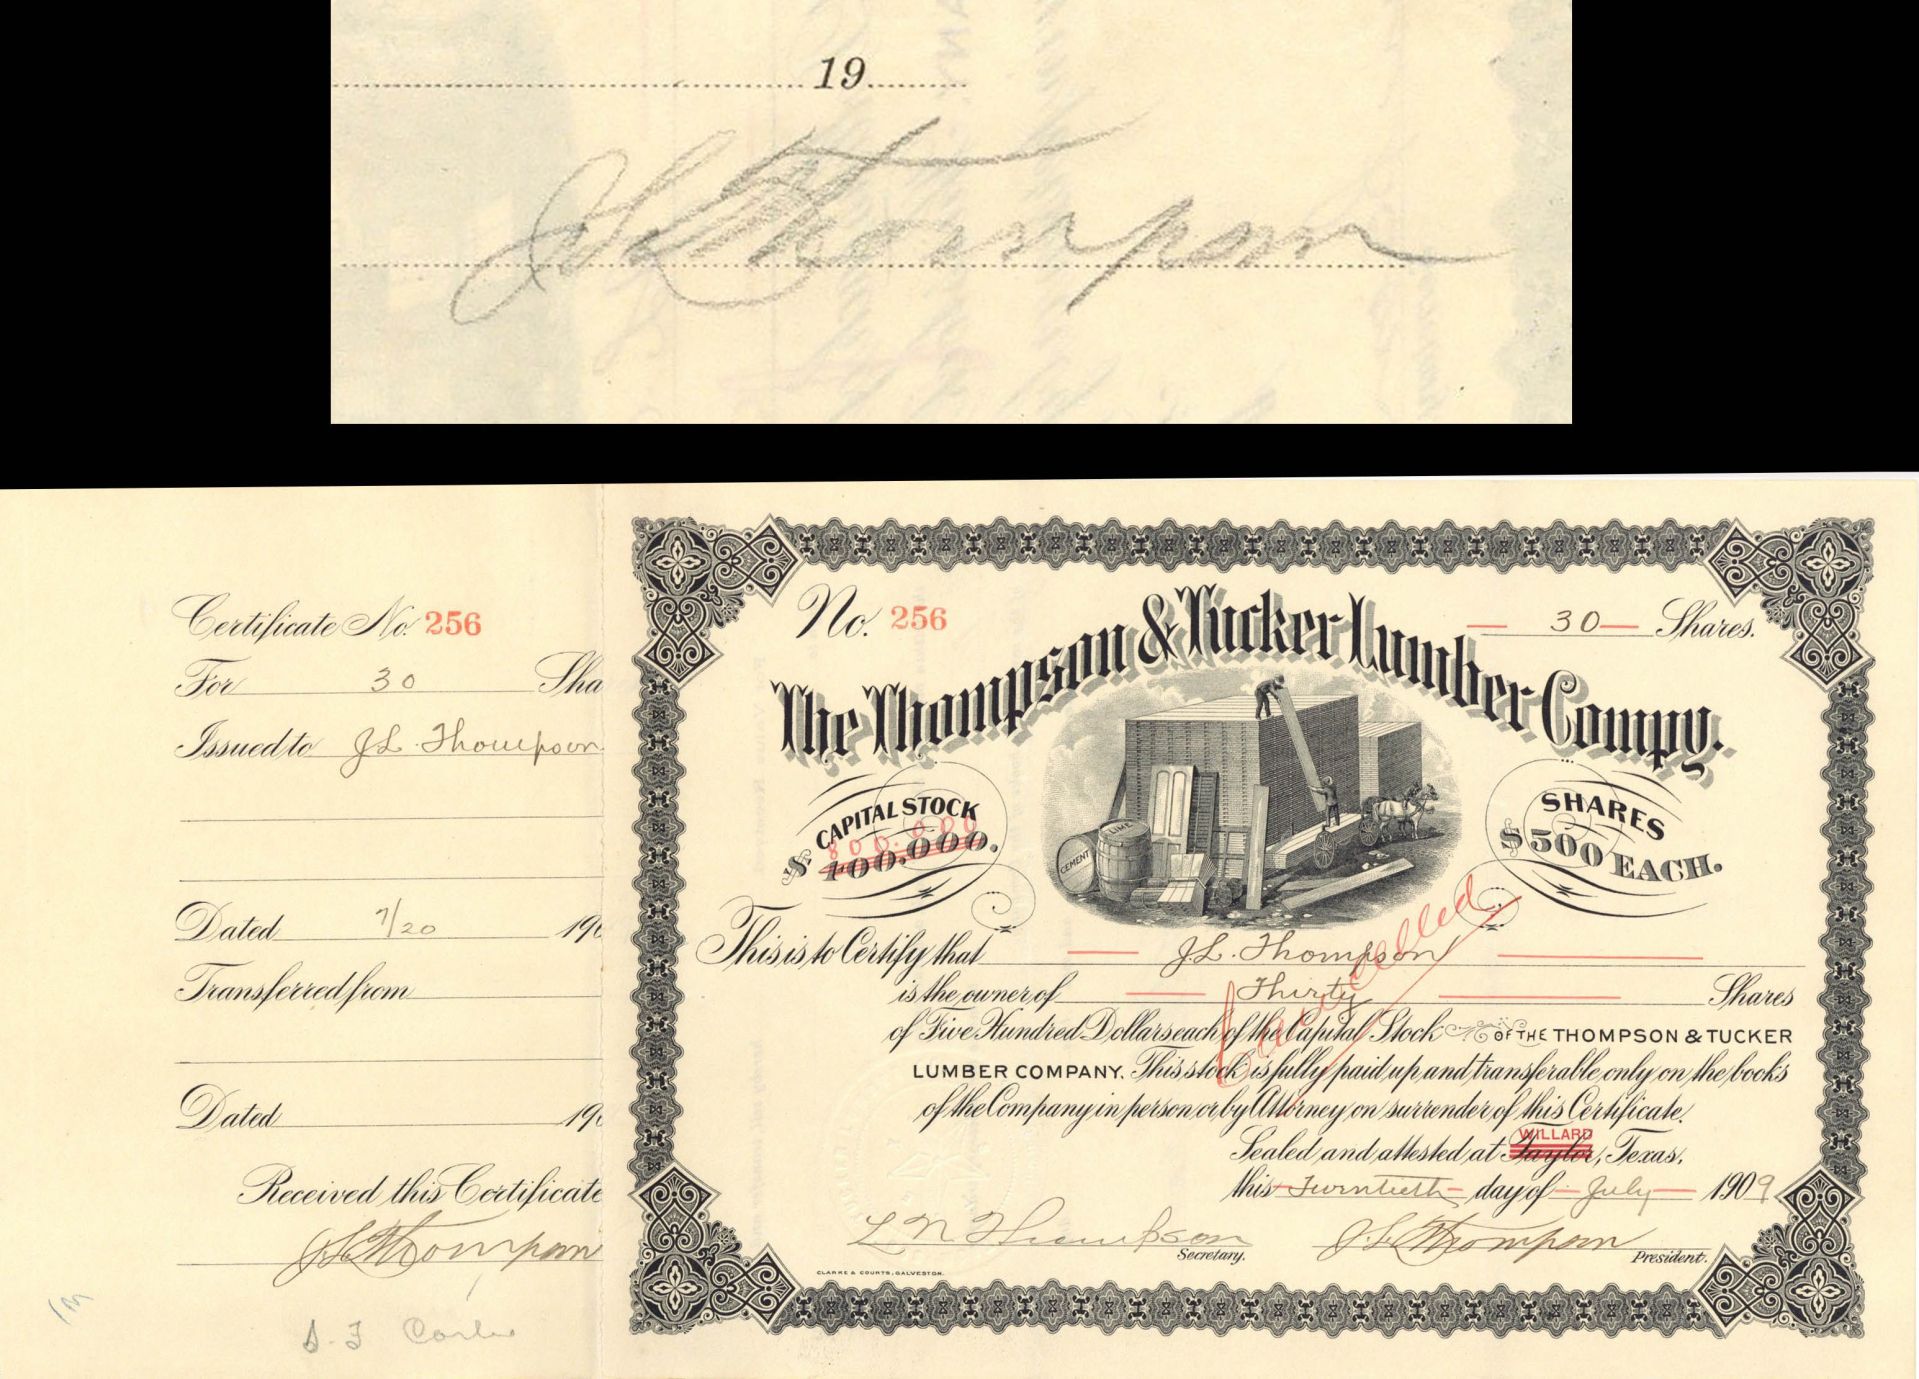 19
J L Thompson
Certificate No. 256
For 30 Sha
Issued to J L. Thompson
Dated 7/20 190
Transferred from
Dated 190
Received this Certificate
J L Thompson
No. 256
30 Shares.
The Thompson & Tucker Lumber Compy.
CAPITAL STOCK
800.000
$ 100,000.
LIME
CEMENT
SHARES
$500 EACH.
This is to Certify that J. L. Thompson
is the owner of Thirty Shares
of Five Hundred Dollars each of the Capital Stock OF THE THOMPSON & TUCKER
LUMBER COMPANY. This stock is fully paid up and transferable only on the books
of the Company in person or by Attorney on surrender of this Certificate.
Cancelled
WILLARD
Sealed and attested at Taylor, Texas,
this Twentieth day of July 1909
L N Thompson
Secretary.
J L Thompson
President.
CLARKE & COURTS, GALVESTON.